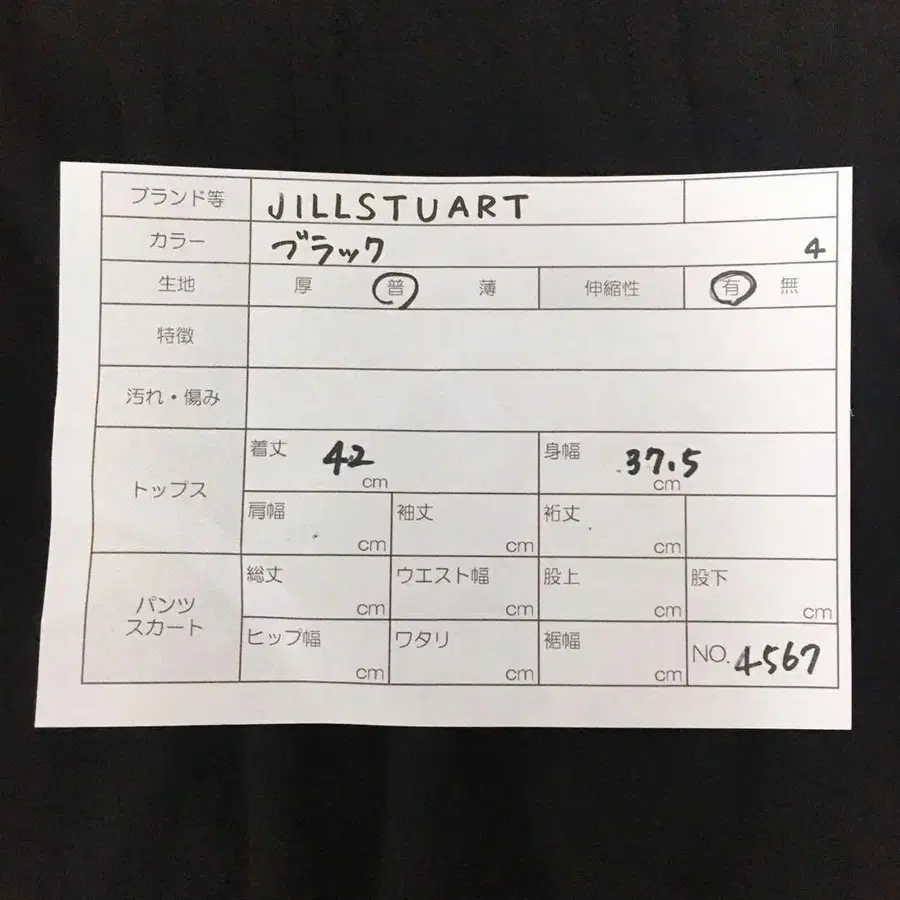 ブランド等 JILLSTUART
カラー ブラック 4
生地 厚 普 薄 伸縮性 有 無
特徴
汚れ・傷み
トップス
着丈 42 cm 身幅 37.5 cm
肩幅 cm 袖丈 cm 裄丈 cm
パンツ
スカート
総丈 cm ウエスト幅 cm 股上 cm 股下 cm
ヒップ幅 cm ワタリ cm 裾幅 cm NO. 4567